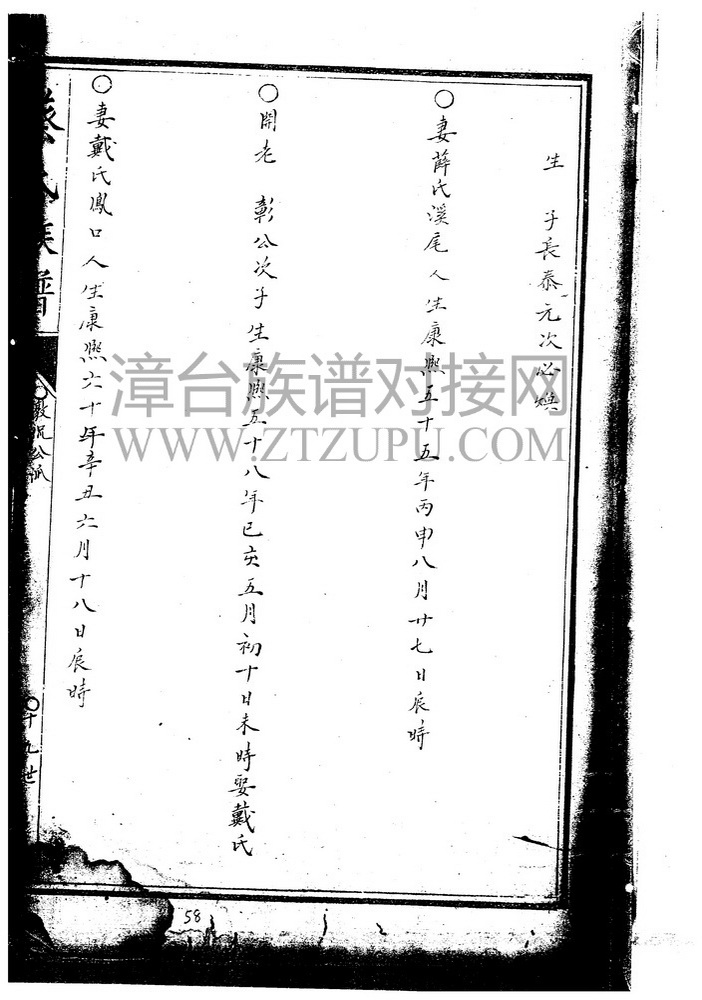 生 子長泰元次必煥
○妻薛氏溪尾人生康熙五十五年丙申八月廿七日辰時
○開老 彰公次子生康熙五十八年已亥五月初十日未時娶戴氏
○妻戴氏鳳口人生康熙六十年辛丑六月十八日辰時
氏族譜
公派
○十九世
58
漳台族谱对接网
WWW.ZTZUPU.COM